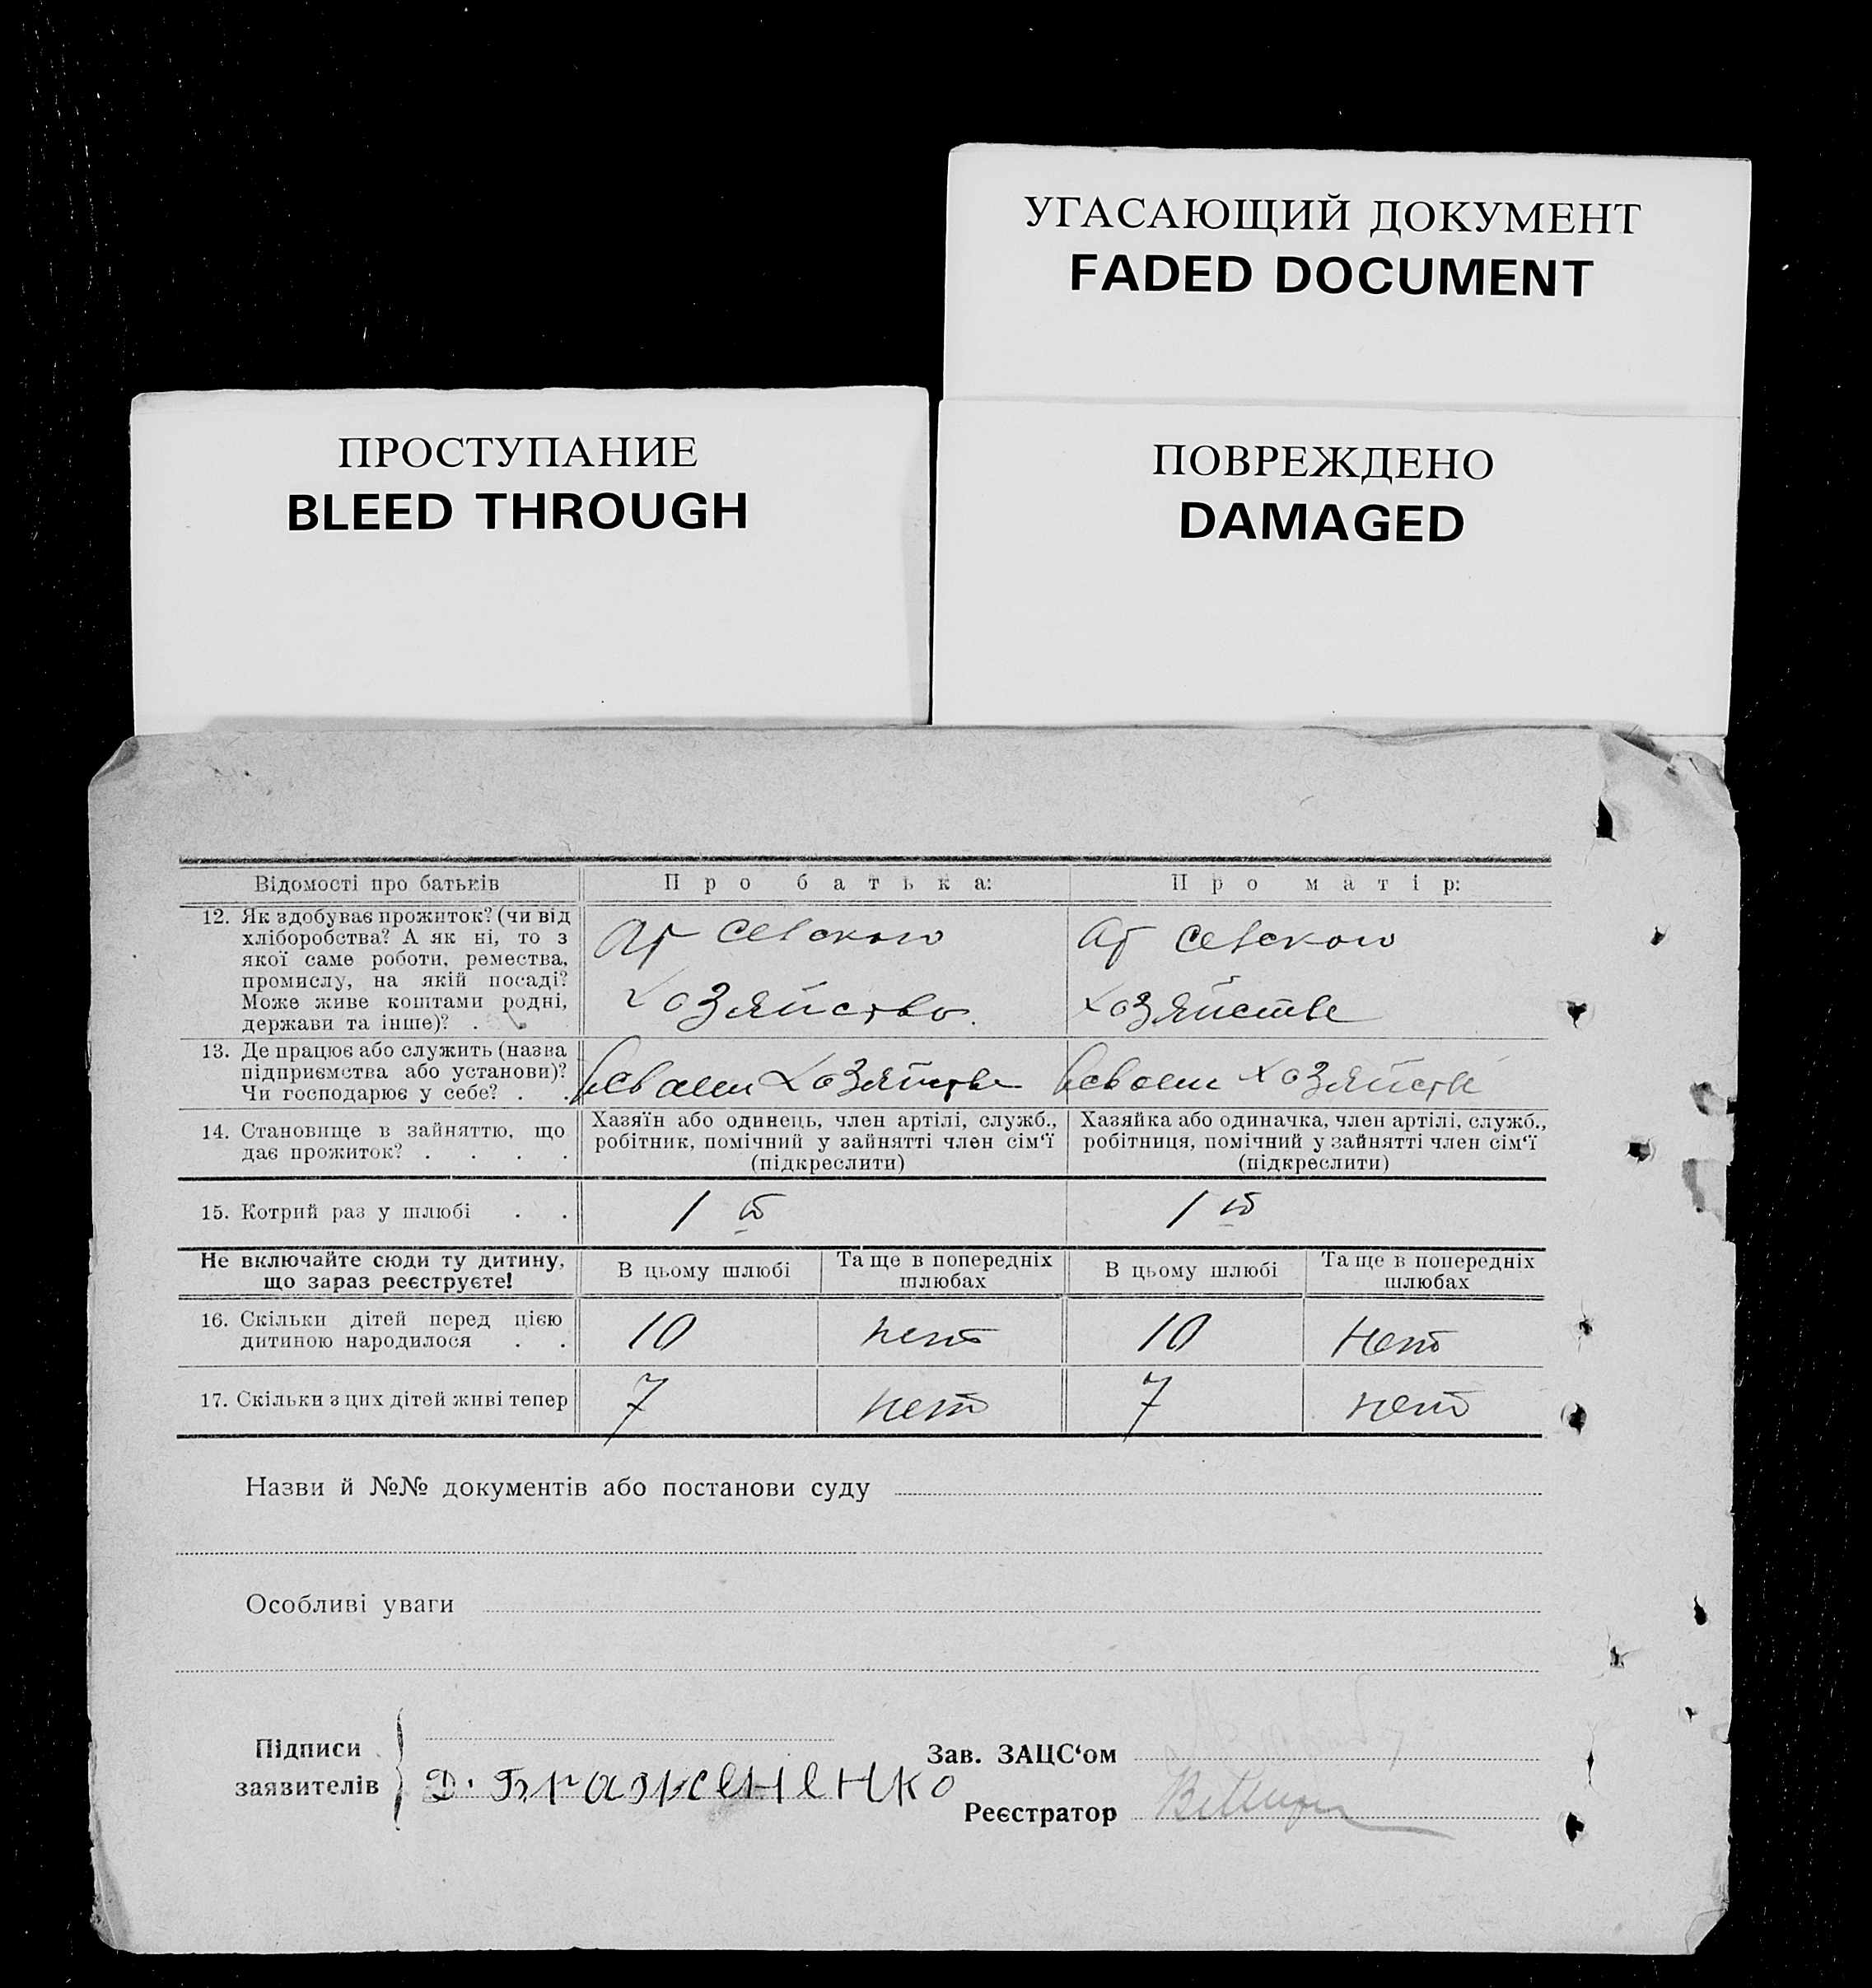 УГАСАЮЩИЙ ДОКУМЕНТ
FADED DOCUMENT
ПРОСТУПАНИЕ
BLEED THROUGH
ПОВРЕЖДЕНО
DAMAGED
Відомості про батьків
Про батька:
Про матір:
12. Як здобуває прожиток? (чи від
хліборобства? А як ні, то з
якої саме роботи, ремества,
промислу, на якій посаді?
Може живе коштами родні,
держави та інше)? .
От сельского
хозяйства.
От сельского
хозяйстве
13. Де працює або служить (назва
підприємства або установи)?
Чи господарює у себе? . .
в своем хозяйстве
в своем хозяйстве
14. Становище в зайняттю, що
дає прожиток? . . . .
Хазяїн або одинець, член артілі, служб.,
робітник, помічний у зайнятті член сім‘ї
(підкреслити)
Хазяйка або одиначка, член артілі, служб.,
робітниця, помічний у зайнятті член сім‘ї
(підкреслити)
15. Котрий раз у шлюбі . .
1 й
1 й
Не включайте сюди ту дитину,
що зараз реєструєте!
В цьому шлюбі
Та ще в попередніх
шлюбах
В цьому шлюбі
Та ще в попередніх
шлюбах
16. Скільки дітей перед цією
дитиною народилося . .
10
нет
10
нет
17. Скільки з цих дітей живі тепер
7
нет
7
нет
Назви й №№ документів або постанови суду
Особливі уваги
Підписи
заявителів
Д. Бражененко
Зав. ЗАЦС‘ом
Реєстратор